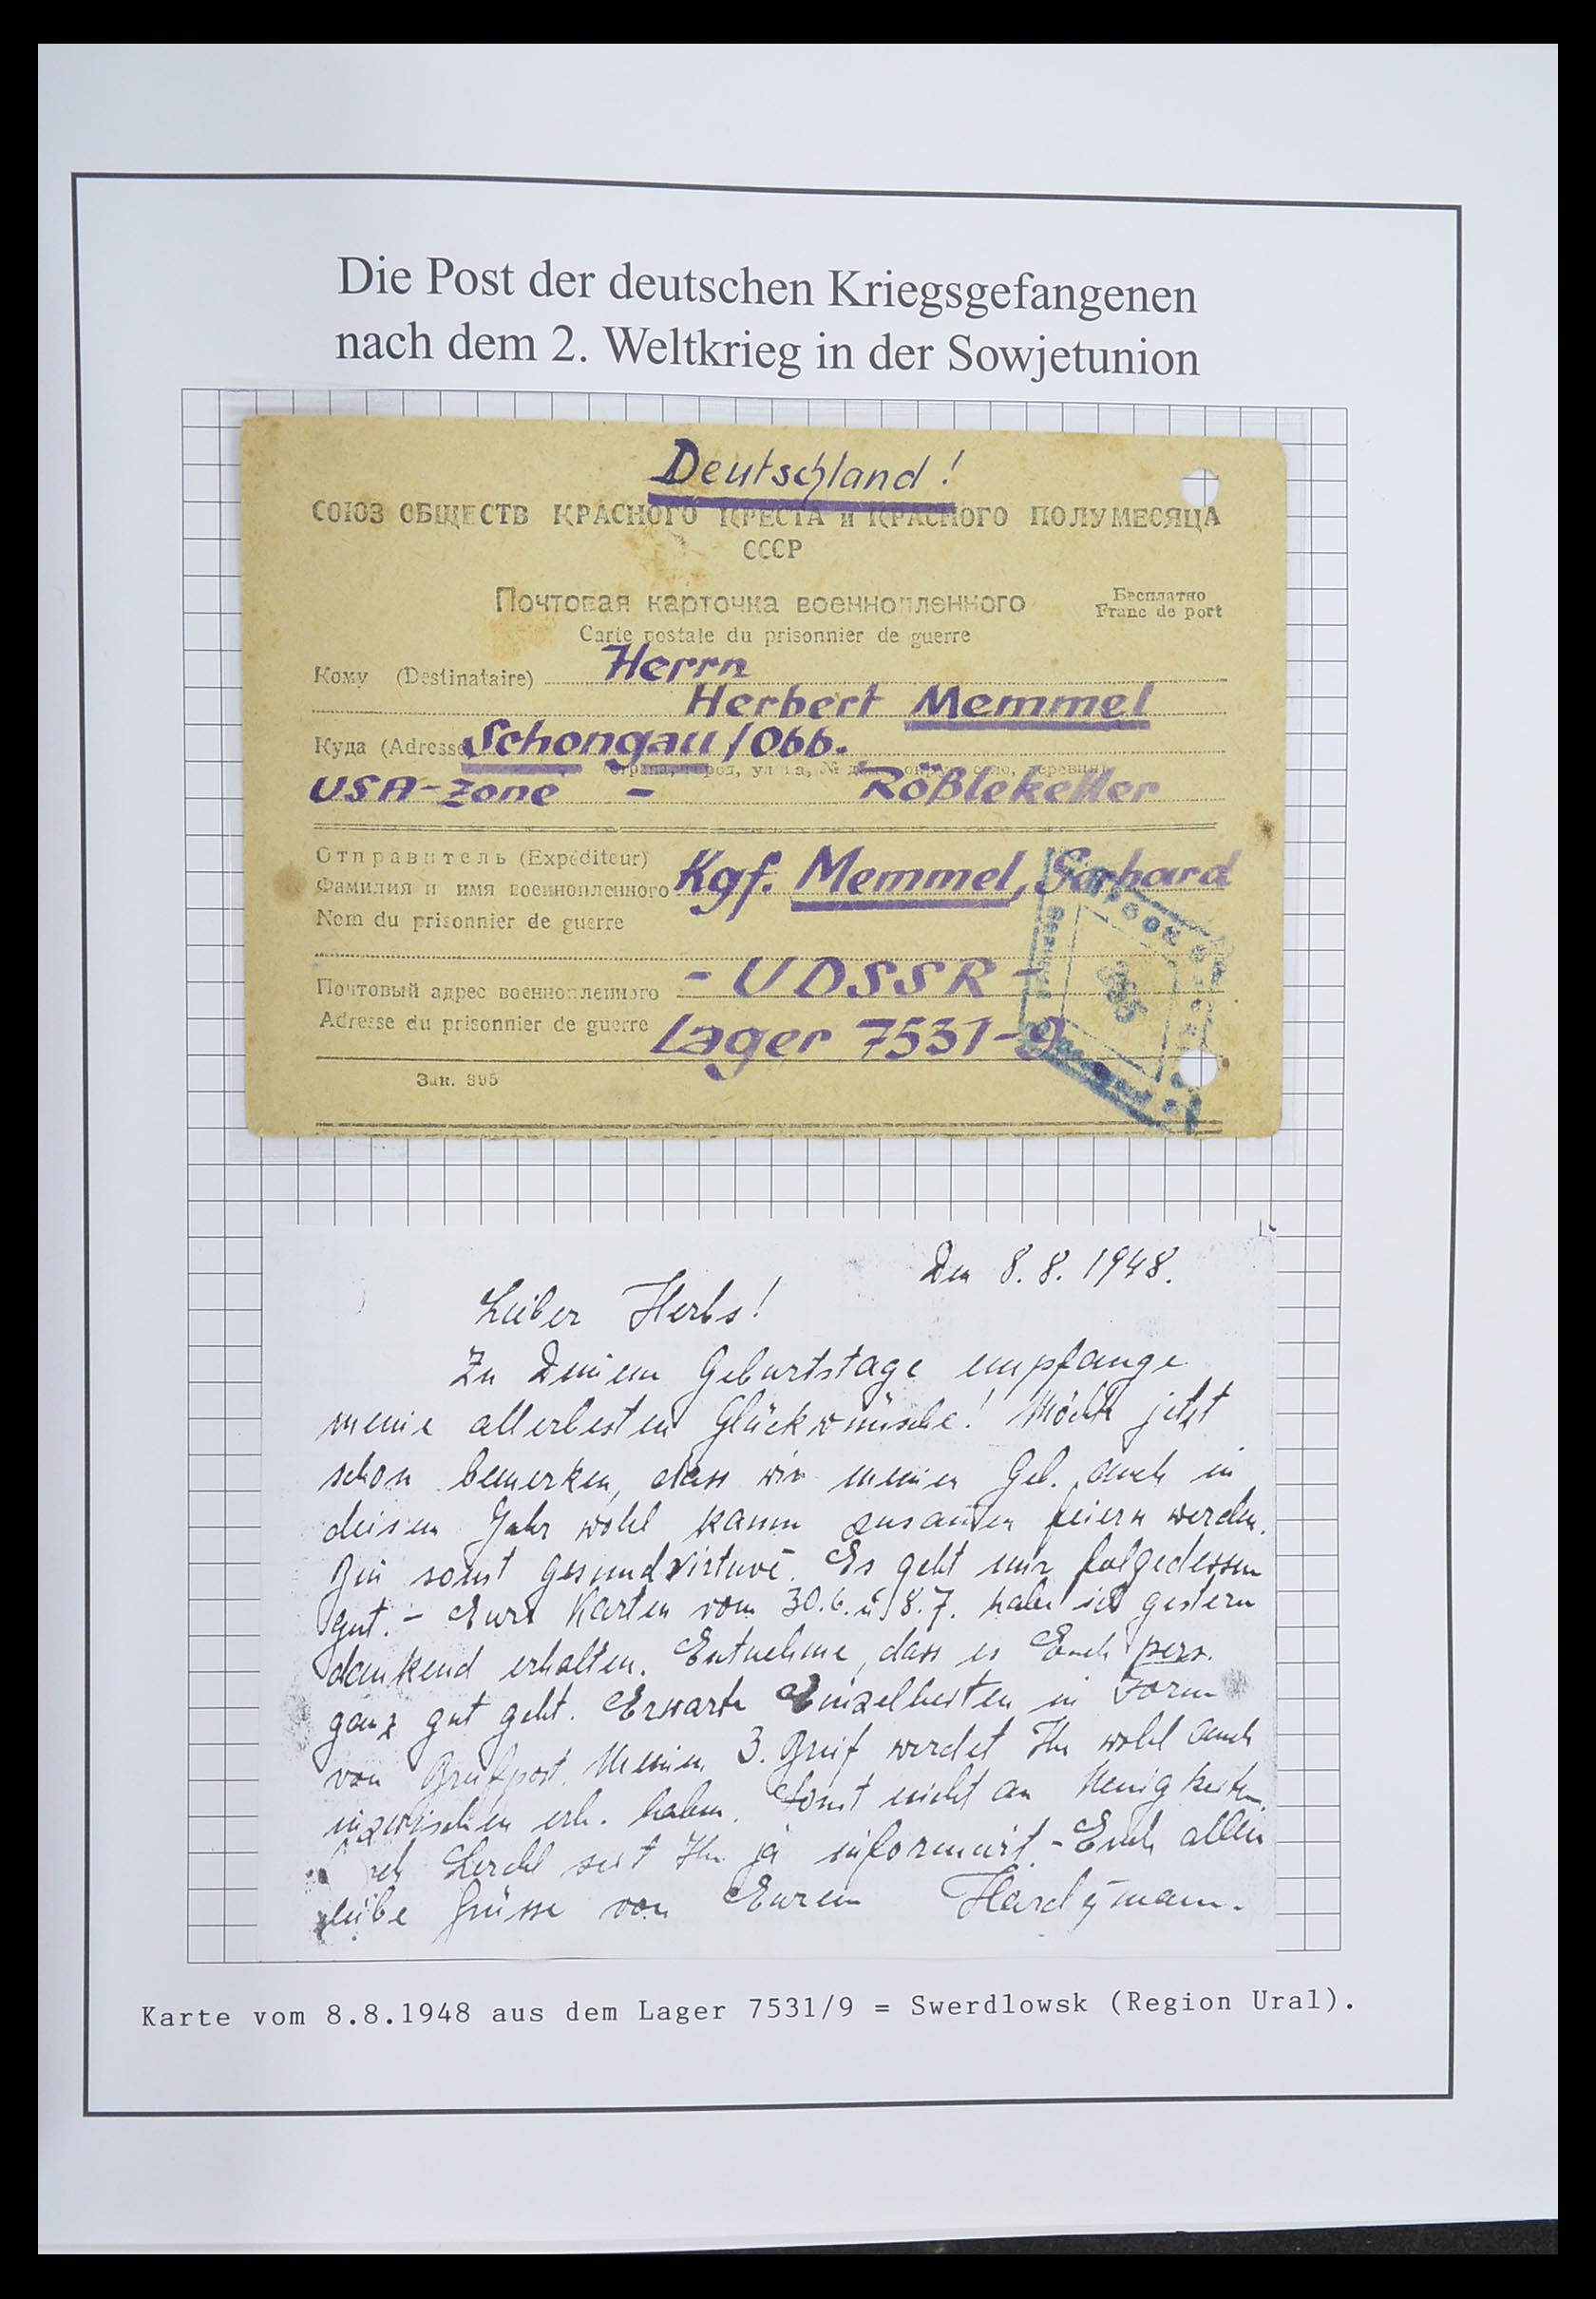 Die Post der deutschen Kriegsgefangenen
nach dem 2. Weltkrieg in der Sowjetunion
Deutschland!
СОЮЗ ОБЩЕСТВ КРАСНОГО КРЕСТА и КРАСНОГО ПОЛУМЕСЯЦА
СССР
Почтовая карточка военнопленного
Бесплатно
Franc de port
Carte postale du prisonnier de guerre
Кому (Destinataire) Herrn
Herbert Memmel
Куда (Adresse Schongau/Obb.
USA-Zone - Rößlekeller
Отправитель (Expéditeur)
Фамилия и имя военнопленного Kgf. Memmel, Gerhard
Nom du prisonnier de guerre
Почтовый адрес военнопленного - UDSSR -
Adresse du prisonnier de guerre Lager 7531-9
Зак. 395
Den 8.8.1948.
Lieber Herbs!
Zu Deinem Geburtstage empfange
meine allerbesten Glückwünsche! Möchte jetzt
schon bemerken, dass wir meinen Geb. auch in
diesem Jahr wohl kaum zusammen feiern werden.
Bin sonst gesund. Es geht mir folgedessen
gut. - Eure Karten vom 30.6. u. 18.7. habe ich gestern
dankend erhalten. Entnehme, dass es Euch pers.
ganz gut geht. Erwarte Einzelheiten in Form
von Briefpost. Meinen 3. Brief werdet Ihr wohl auch
inzwischen erh. haben. Sonst nicht an Neuigkeiten.
seit Ihr ja informiert. - Euch allen
liebe Grüsse von Eurem Hardymann.
Karte vom 8.8.1948 aus dem Lager 7531/9 = Swerdlowsk (Region Ural).